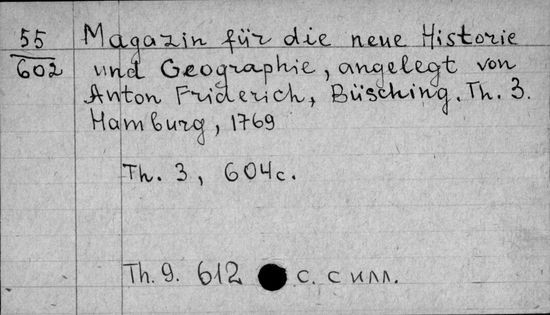 55 Magazin für die neue Historie
602 und Geographie, angelegt von
Anton Friderich, Büsching. Th. 3.
Hamburg, 1769
Th. 3, 604с.
Th. 9. 612 с. с илл.